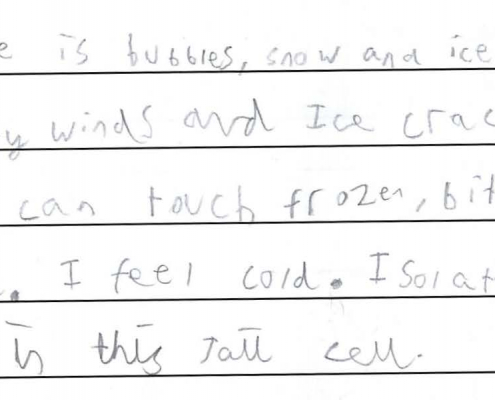 e is bubbles, snow and ice
y winds and Ice crac
can touch frozen, bit
. I feel cold. Isolat
in this Jail cell.